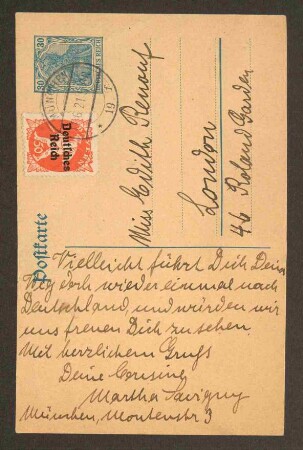 30 30
MÜNCHEN
21
19
f
50
Deutsches
Reich
Postkarte
Miss Edith Renouf
London
46 Roland Garden
Vielleicht führt Dich Dein
Weg doch wieder einmal nach
Deutschland, und würden wir
uns freuen Dich zu sehen.
Mit herzlichem Gruß
Deine Cousine
Martha Savigny
München, Montenstr 3